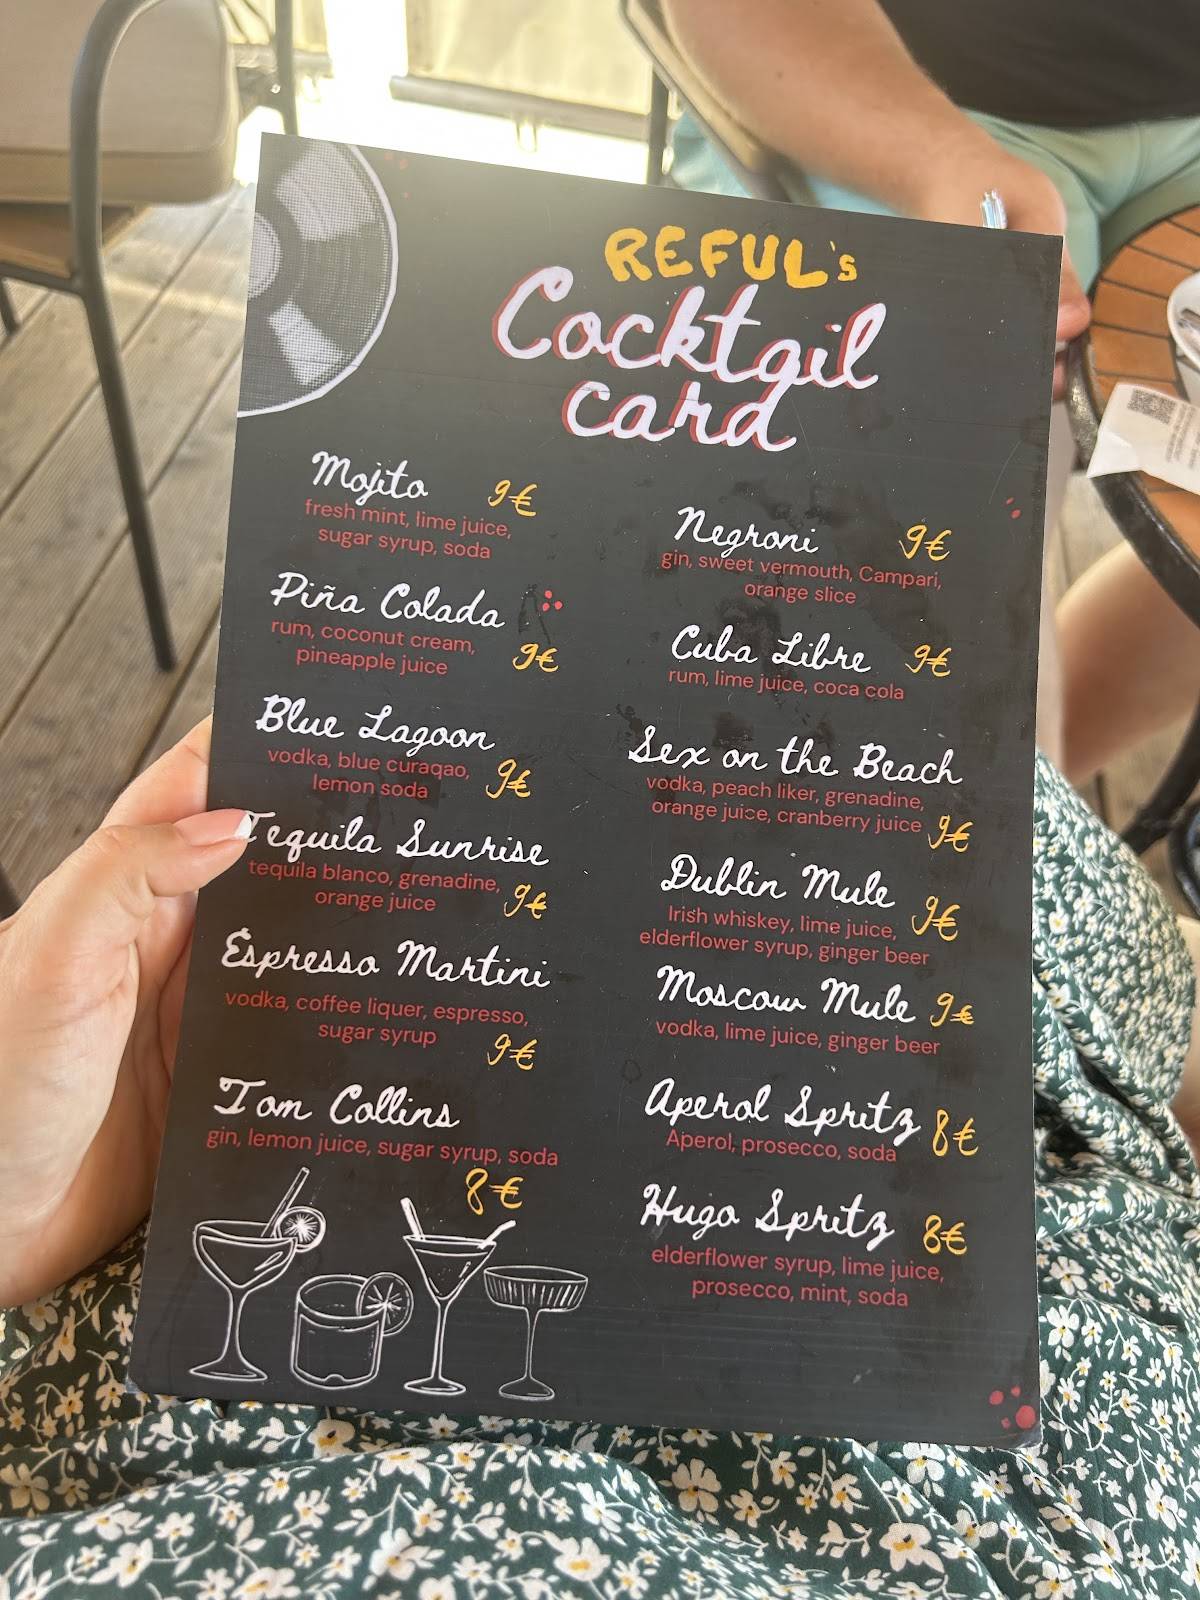 REFUL's
Cocktail
card
Mojito 9€
fresh mint, lime juice,
sugar syrup, soda
Piña Colada
rum, coconut cream,
pineapple juice 9€
Blue Lagoon
vodka, blue curaqao,
lemon soda 9€
Tequila Sunrise
tequila blanco, grenadine,
orange juice 9€
Espresso Martini
vodka, coffee liquer, espresso,
sugar syrup 9€
Tom Collins
gin, lemon juice, sugar syrup, soda
8€
Negroni 9€
gin, sweet vermouth, Campari,
orange slice
Cuba Libre 9€
rum, lime juice, coca cola
Sex on the Beach
vodka, peach liker, grenadine,
orange juice, cranberry juice 9€
Dublin Mule 9€
Irish whiskey, lime juice,
elderflower syrup, ginger beer
Moscow Mule 9€
vodka, lime juice, ginger beer
Aperol Spritz 8€
Aperol, prosecco, soda
Hugo Spritz 8€
elderflower syrup, lime juice,
prosecco, mint, soda